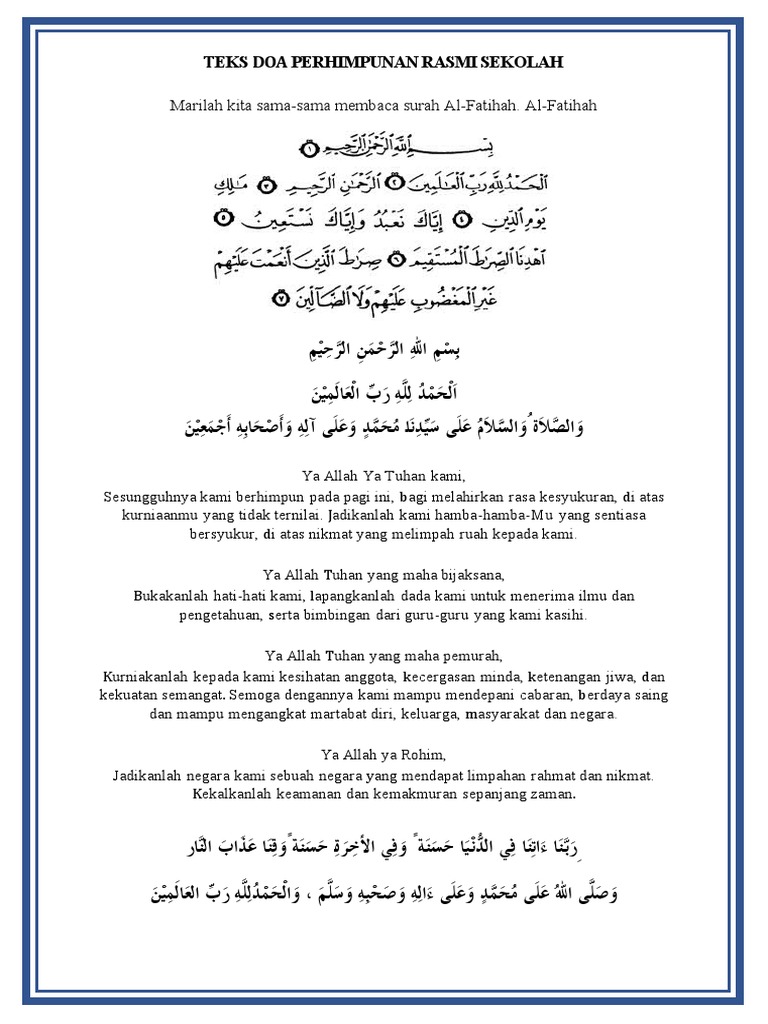 TEKS DOA PERHIMPUNAN RASMI SEKOLAH
Marilah kita sama-sama membaca surah Al-Fatihah. Al-Fatihah
بِسْمِ ٱللَّهِ ٱلرَّحْمَٰنِ ٱلرَّحِيمِ ١
ٱلْحَمْدُ لِلَّهِ رَبِّ ٱلْعَٰلَمِينَ ٢ ٱلرَّحْمَٰنِ ٱلرَّحِيمِ ٣ مَٰلِكِ
يَوْمِ ٱلدِّينِ ٤ إِيَّاكَ نَعْبُدُ وَإِيَّاكَ نَسْتَعِينُ ٥
ٱهْدِنَا ٱلصِّرَٰطَ ٱلْمُسْتَقِيمَ ٦ صِرَٰطَ ٱلَّذِينَ أَنْعَمْتَ عَلَيْهِمْ
غَيْرِ ٱلْمَغْضُوبِ عَلَيْهِمْ وَلَا ٱلضَّآلِّينَ ٧
بِسْمِ اللهِ الرَّحْمَنِ الرَّحِيْمِ
اَلْحَمْدُ لِلَّهِ رَبِّ الْعَالَمِيْنَ
وَالصَّلاَةُ وَالسَّلاَمُ عَلَى سَيِّدِنَا مُحَمَّدٍ وَعَلَى آلِهِ وَأَصْحَابِهِ أَجْمَعِيْنَ
Ya Allah Ya Tuhan kami,
Sesungguhnya kami berhimpun pada pagi ini, bagi melahirkan rasa kesyukuran, di atas
kurniaanmu yang tidak ternilai. Jadikanlah kami hamba-hamba-Mu yang sentiasa
bersyukur, di atas nikmat yang melimpah ruah kepada kami.
Ya Allah Tuhan yang maha bijaksana,
Bukakanlah hati-hati kami, lapangkanlah dada kami untuk menerima ilmu dan
pengetahuan, serta bimbingan dari guru-guru yang kami kasihi.
Ya Allah Tuhan yang maha pemurah,
Kurniakanlah kepada kami kesihatan anggota, kecergasan minda, ketenangan jiwa, dan
kekuatan semangat. Semoga dengannya kami mampu mendepani cabaran, berdaya saing
dan mampu mengangkat martabat diri, keluarga, masyarakat dan negara.
Ya Allah ya Rohim,
Jadikanlah negara kami sebuah negara yang mendapat limpahan rahmat dan nikmat.
Kekalkanlah keamanan dan kemakmuran sepanjang zaman.
رَبَّنَا ءَاتِنَا فِي الدُّنْيَا حَسَنَةً وَفِي الأَخِرَةِ حَسَنَةً وَقِنَا عَذَابَ النَّارِ
وَصَلَّى اللهُ عَلَى مُحَمَّدٍ وَعَلَى ءَالِهِ وَصَحْبِهِ وَسَلَّمَ ، وَالْحَمْدُلِلَّهِ رَبِّ العَالَمِيْنَ